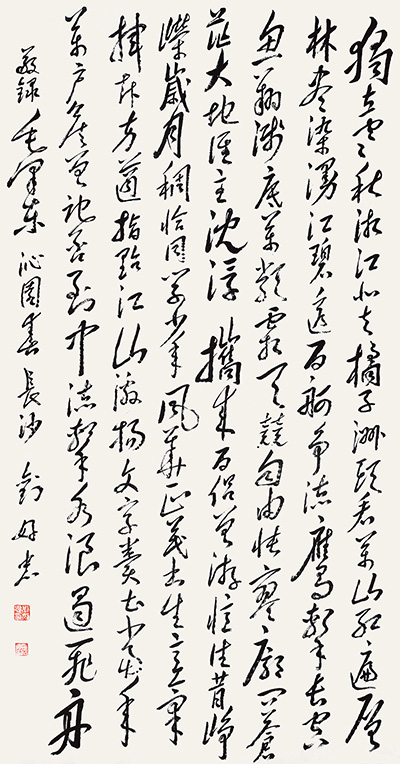 獨立寒秋湘江北去橘子洲頭看萬山紅遍層
林盡染漫江碧透百舸爭流鷹擊長空
魚翔淺底萬類霜天競自由悵寥廓問蒼
茫大地誰主沈浮攜來百侣曾游憶往昔崢
嶸歲月稠恰同學少年風華正茂書生意氣
揮斥方遒指點江山激揚文字糞土當年
萬户侯曾記否到中流擊水浪遏飛舟
敬録毛澤東沁園春長沙劉